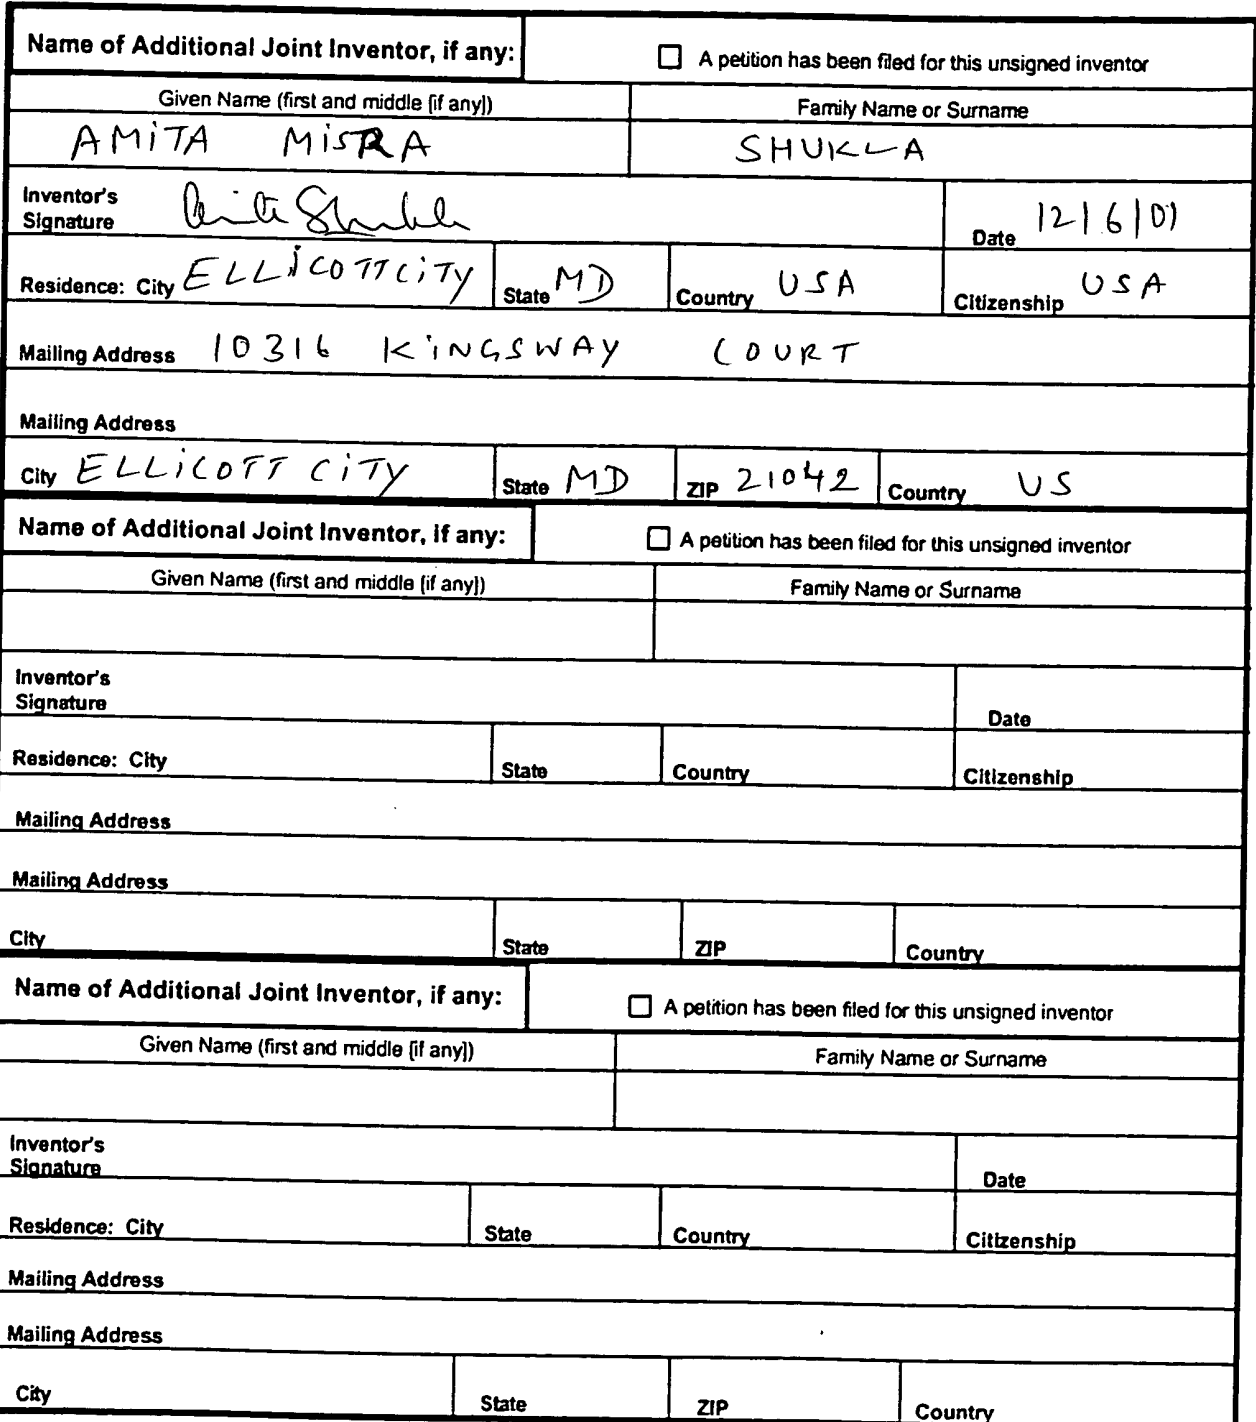 Name of Additional Joint Inventor, if any: ☐ A petition has been filed for this unsigned inventor
Given Name (first and middle [if any]) Family Name or Surname
AMiTA MiSRA SHUKLA
Inventor's
Signature Amita Shukla Date 12/6/01
Residence: City ELLiCOTTCiTY State MD Country USA Citizenship USA
Mailing Address 10316 KiNGSWAY COURT
Mailing Address
City ELLiCOTT CiTY State MD ZIP 21042 Country US
Name of Additional Joint Inventor, if any: ☐ A petition has been filed for this unsigned inventor
Given Name (first and middle [if any]) Family Name or Surname
Inventor's
Signature Date
Residence: City State Country Citizenship
Mailing Address
Mailing Address
City State ZIP Country
Name of Additional Joint Inventor, if any: ☐ A petition has been filed for this unsigned inventor
Given Name (first and middle [if any]) Family Name or Surname
Inventor's
Signature Date
Residence: City State Country Citizenship
Mailing Address
Mailing Address
City State ZIP Country